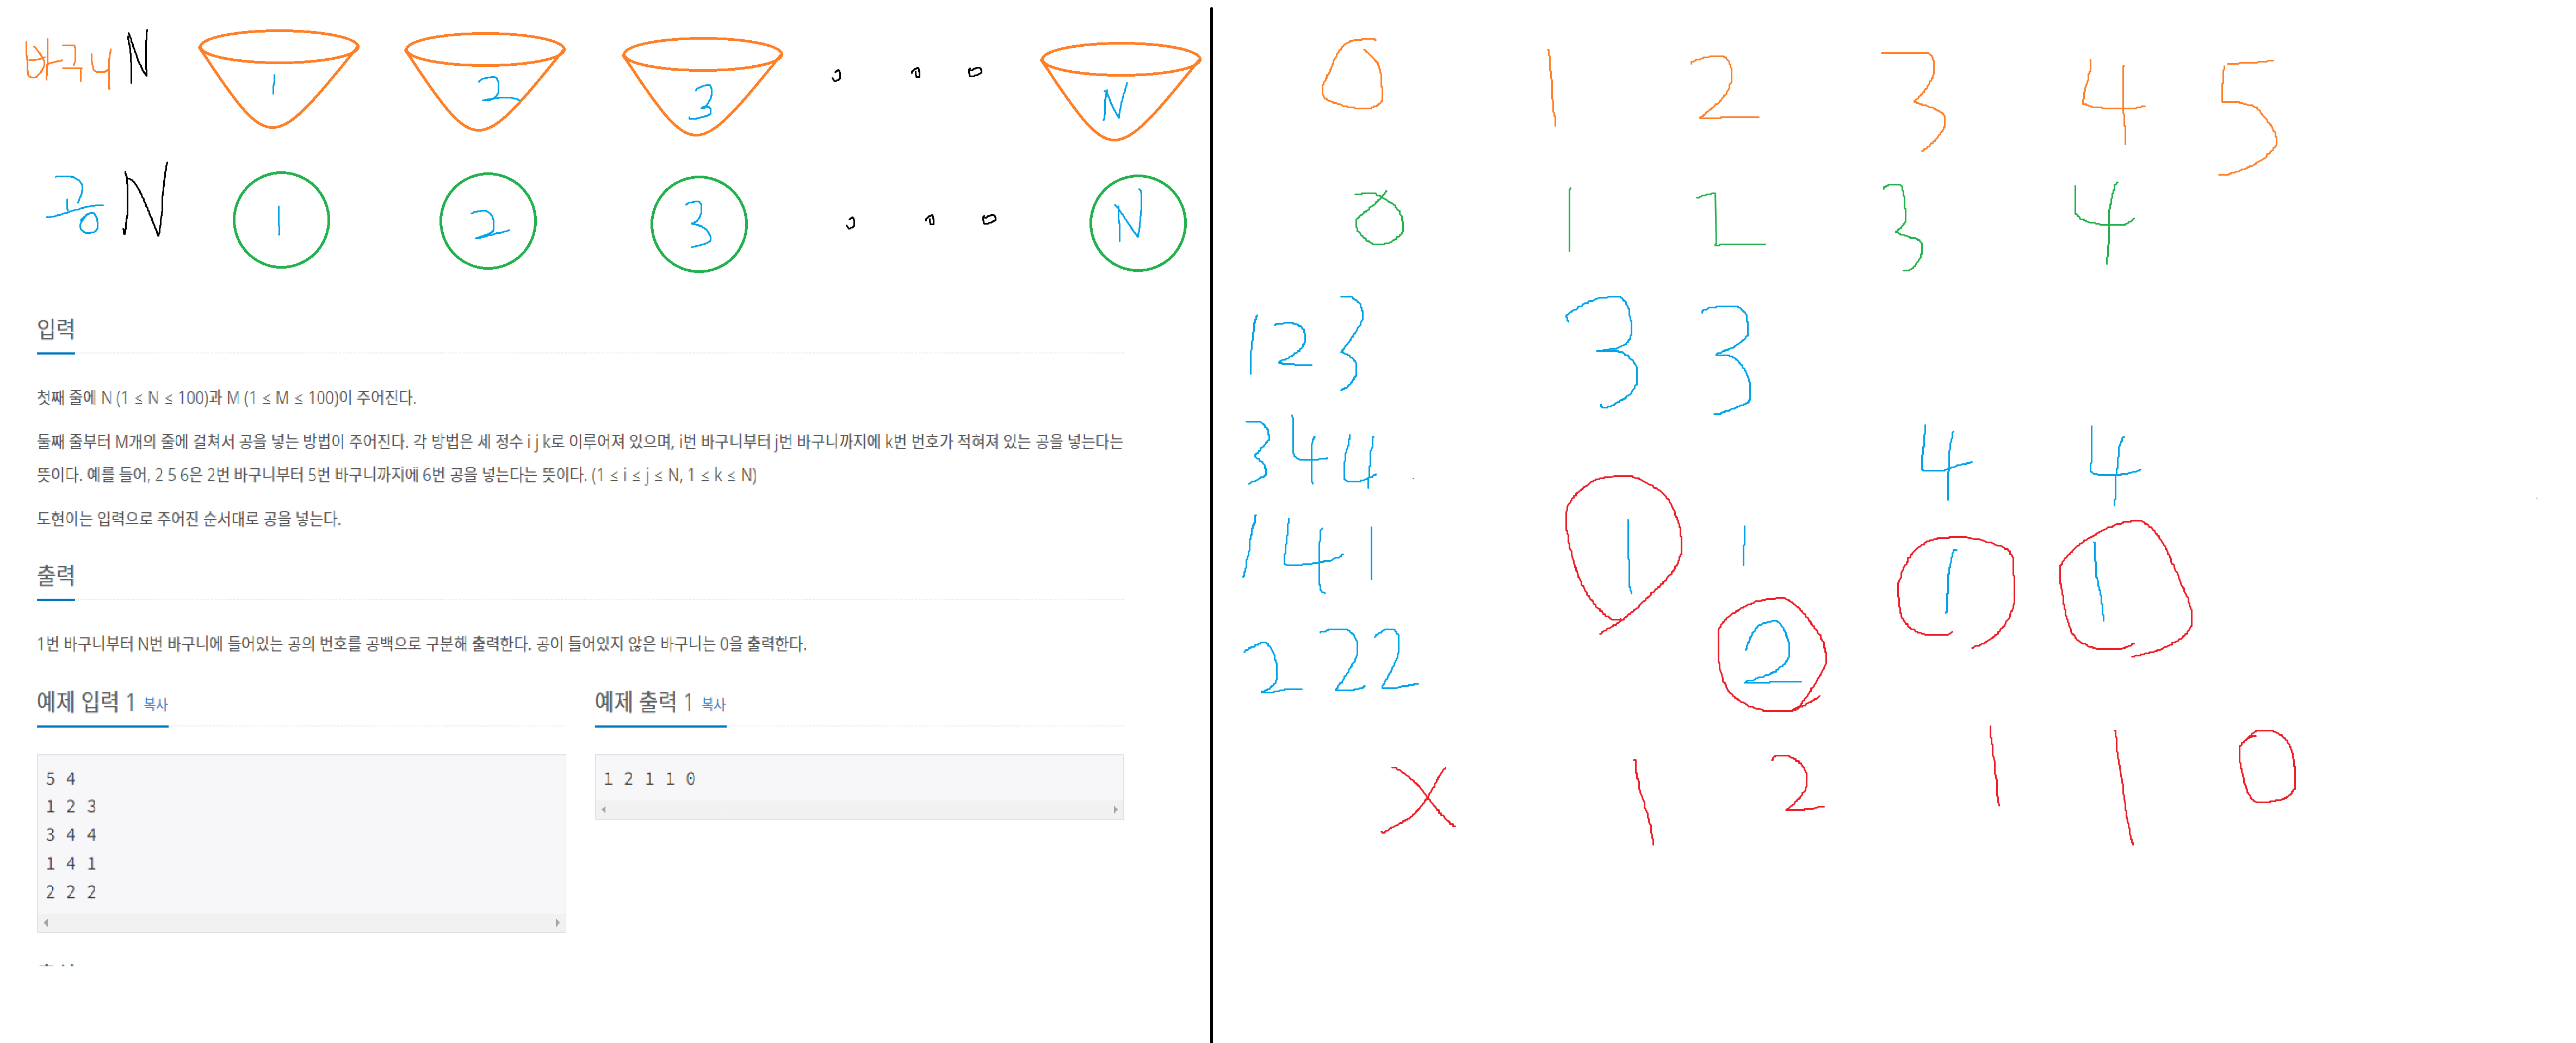 바구니 N 1 2 3 N
공 N 1 2 3 N
입력
첫째 줄에 N (1 ≤ N ≤ 100)과 M (1 ≤ M ≤ 100)이 주어진다.
둘째 줄부터 M개의 줄에 걸쳐서 공을 넣는 방법이 주어진다. 각 방법은 세 정수 i j k로 이루어져 있으며, i번 바구니부터 j번 바구니까지에 k번 번호가 적혀져 있는 공을 넣는다는
뜻이다. 예를 들어, 2 5 6은 2번 바구니부터 5번 바구니까지에 6번 공을 넣는다는 뜻이다. (1 ≤ i ≤ j ≤ N, 1 ≤ k ≤ N)
도현이는 입력으로 주어진 순서대로 공을 넣는다.
출력
1번 바구니부터 N번 바구니에 들어있는 공의 번호를 공백으로 구분해 출력한다. 공이 들어있지 않은 바구니는 0을 출력한다.
예제 입력 1 복사
5 4
1 2 3
3 4 4
1 4 1
2 2 2
예제 출력 1 복사
1 2 1 1 0
0 1 2 3 4 5
0 1 2 3 4
1 2 3 3 3
3 4 4 4 4
1 4 1 1 1 1 1
2 2 2 2
X 1 2 1 1 0